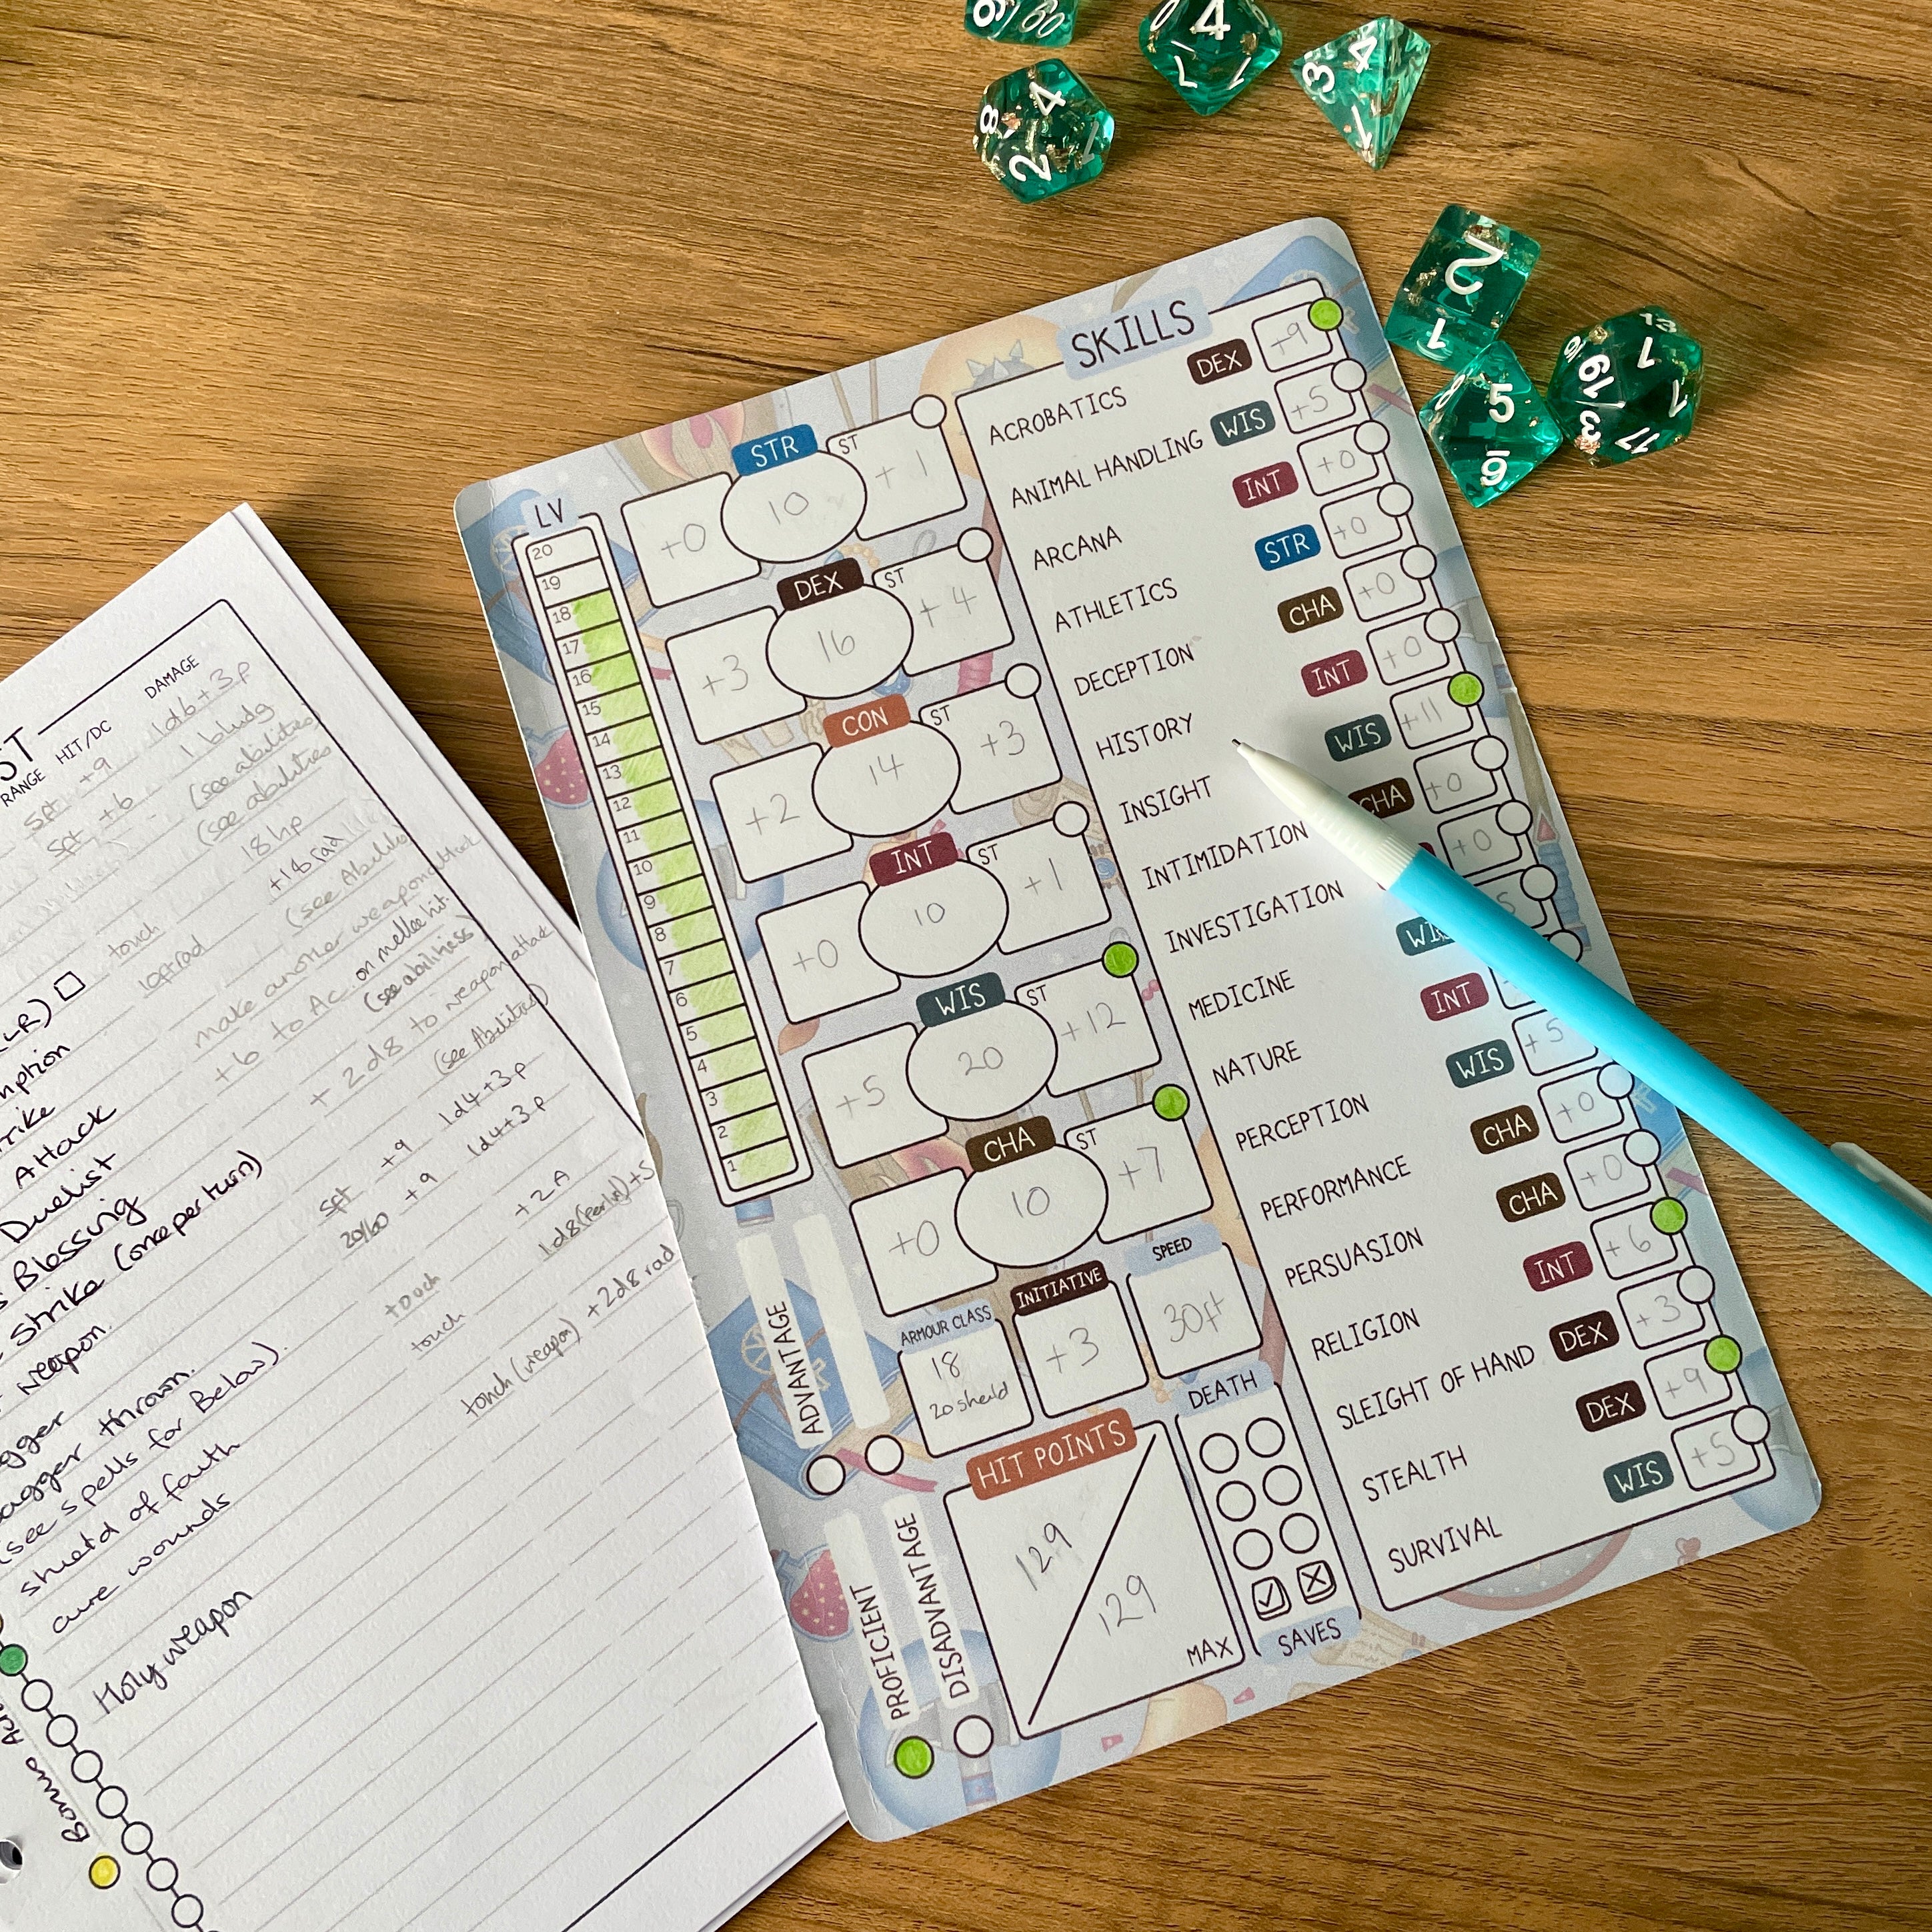 SKILLS
ACROBATICS DEX +9
ANIMAL HANDLING WIS +5
ARCANA INT +0
ATHLETICS STR +0
DECEPTION CHA +0
HISTORY INT +0
INSIGHT WIS +11
INTIMIDATION CHA +0
INVESTIGATION +0
MEDICINE WIS 5
NATURE INT
PERCEPTION WIS +5
PERFORMANCE CHA +0
PERSUASION CHA +0
RELIGION INT +6
SLEIGHT OF HAND DEX +3
STEALTH DEX +9
SURVIVAL WIS +5
LV
20
19
18
17
16
15
14
13
12
11
10
9
8
7
6
5
4
3
2
1
STR ST
+0 10 +1
DEX ST
+3 16 +4
CON ST
+2 14 +3
INT ST
+0 10 +1
WIS ST
+5 20 +12
CHA ST
+0 10 +7
ARMOUR CLASS INITIATIVE SPEED
18
20 sheild
+3
30ft
ADVANTAGE
DISADVANTAGE
PROFICIENT
HIT POINTS
129
129
MAX
DEATH
SAVES
ST
RANGE HIT/DC DAMAGE
5ft +9 1d6+3 p
5ft +6 1 bludg
(see abilities)
(see abilities
18hp
touch +18 rad
10ft rad (see Abilities
make another weapon attack
+6 to Ac. on mellee hit.
(see abilities)
+ 2d8 to weapon attack
(see Abilities)
5ft +9 1d4+3 p
20/60 +9 1d4+3 p
+2 A
touch 1d8 (per lvl) +5
touch
touch (weapon) +2d8 rad
LR)
mption
rike
Attack
Duelist
Blessing
Strike (once per turn)
weapon.
gger
agger thrown.
(see spells for Below).
shield of faith
cure wounds
Holy weapon
Bonus
4
8
2
1
4
3
4
1
2
1
5
6
8
19
1
13
17
16